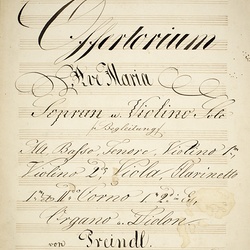 Offertorium
Ave Maria
Sopran u. Violino Solo
Begleitung
Alt Basso Tenore, Violino 1mo
Violino 2do Viola, Clarinetto
Corno
Organo u. Violon
von Prändl.